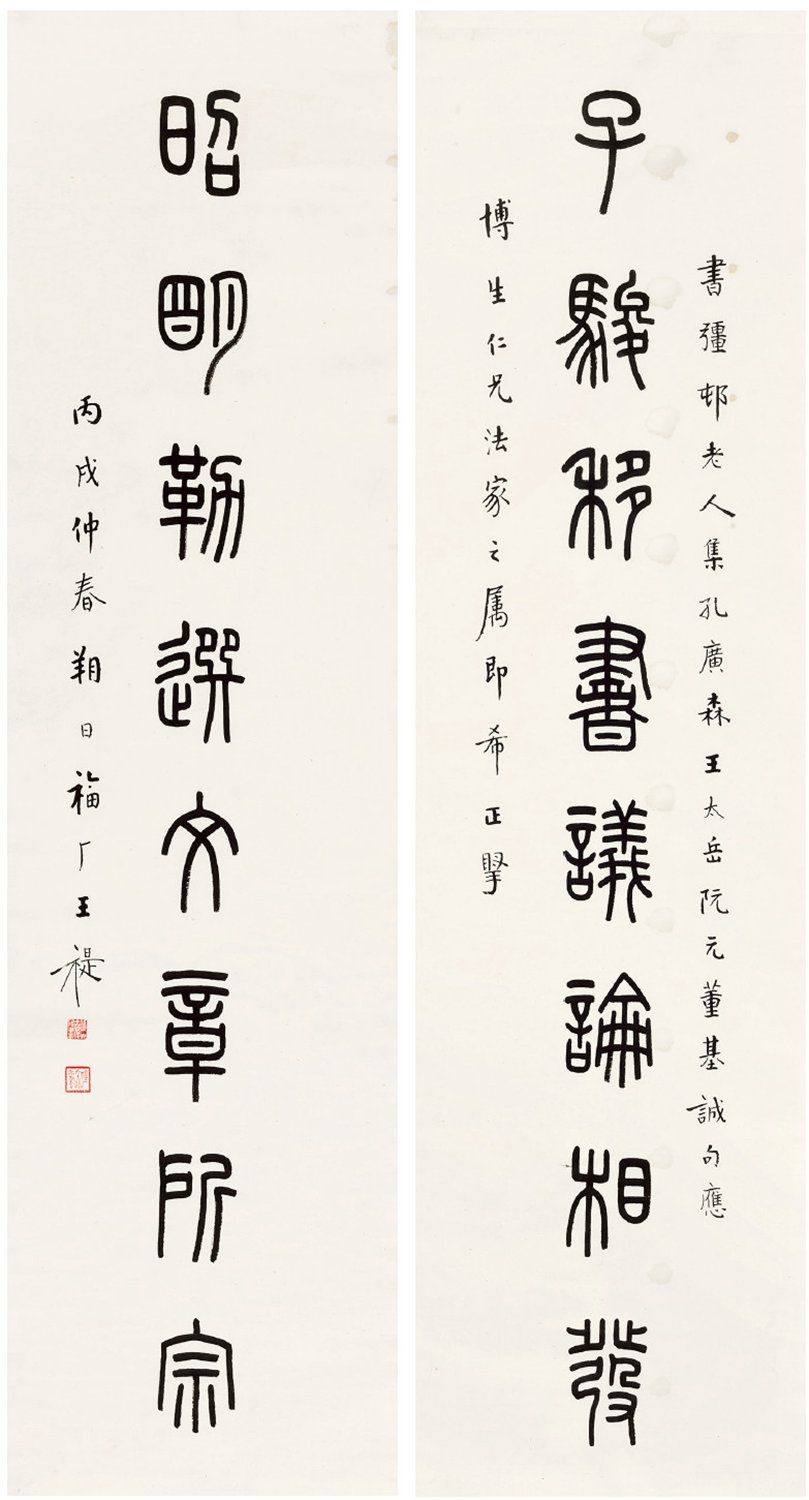 書彊邨老人集孔廣森王太岳阮元董基誠句應
子駿移書議論相發
博生仁兄法家之属即希正擥
昭明勒選文章所宗
丙戌仲春朔日福厂王禔